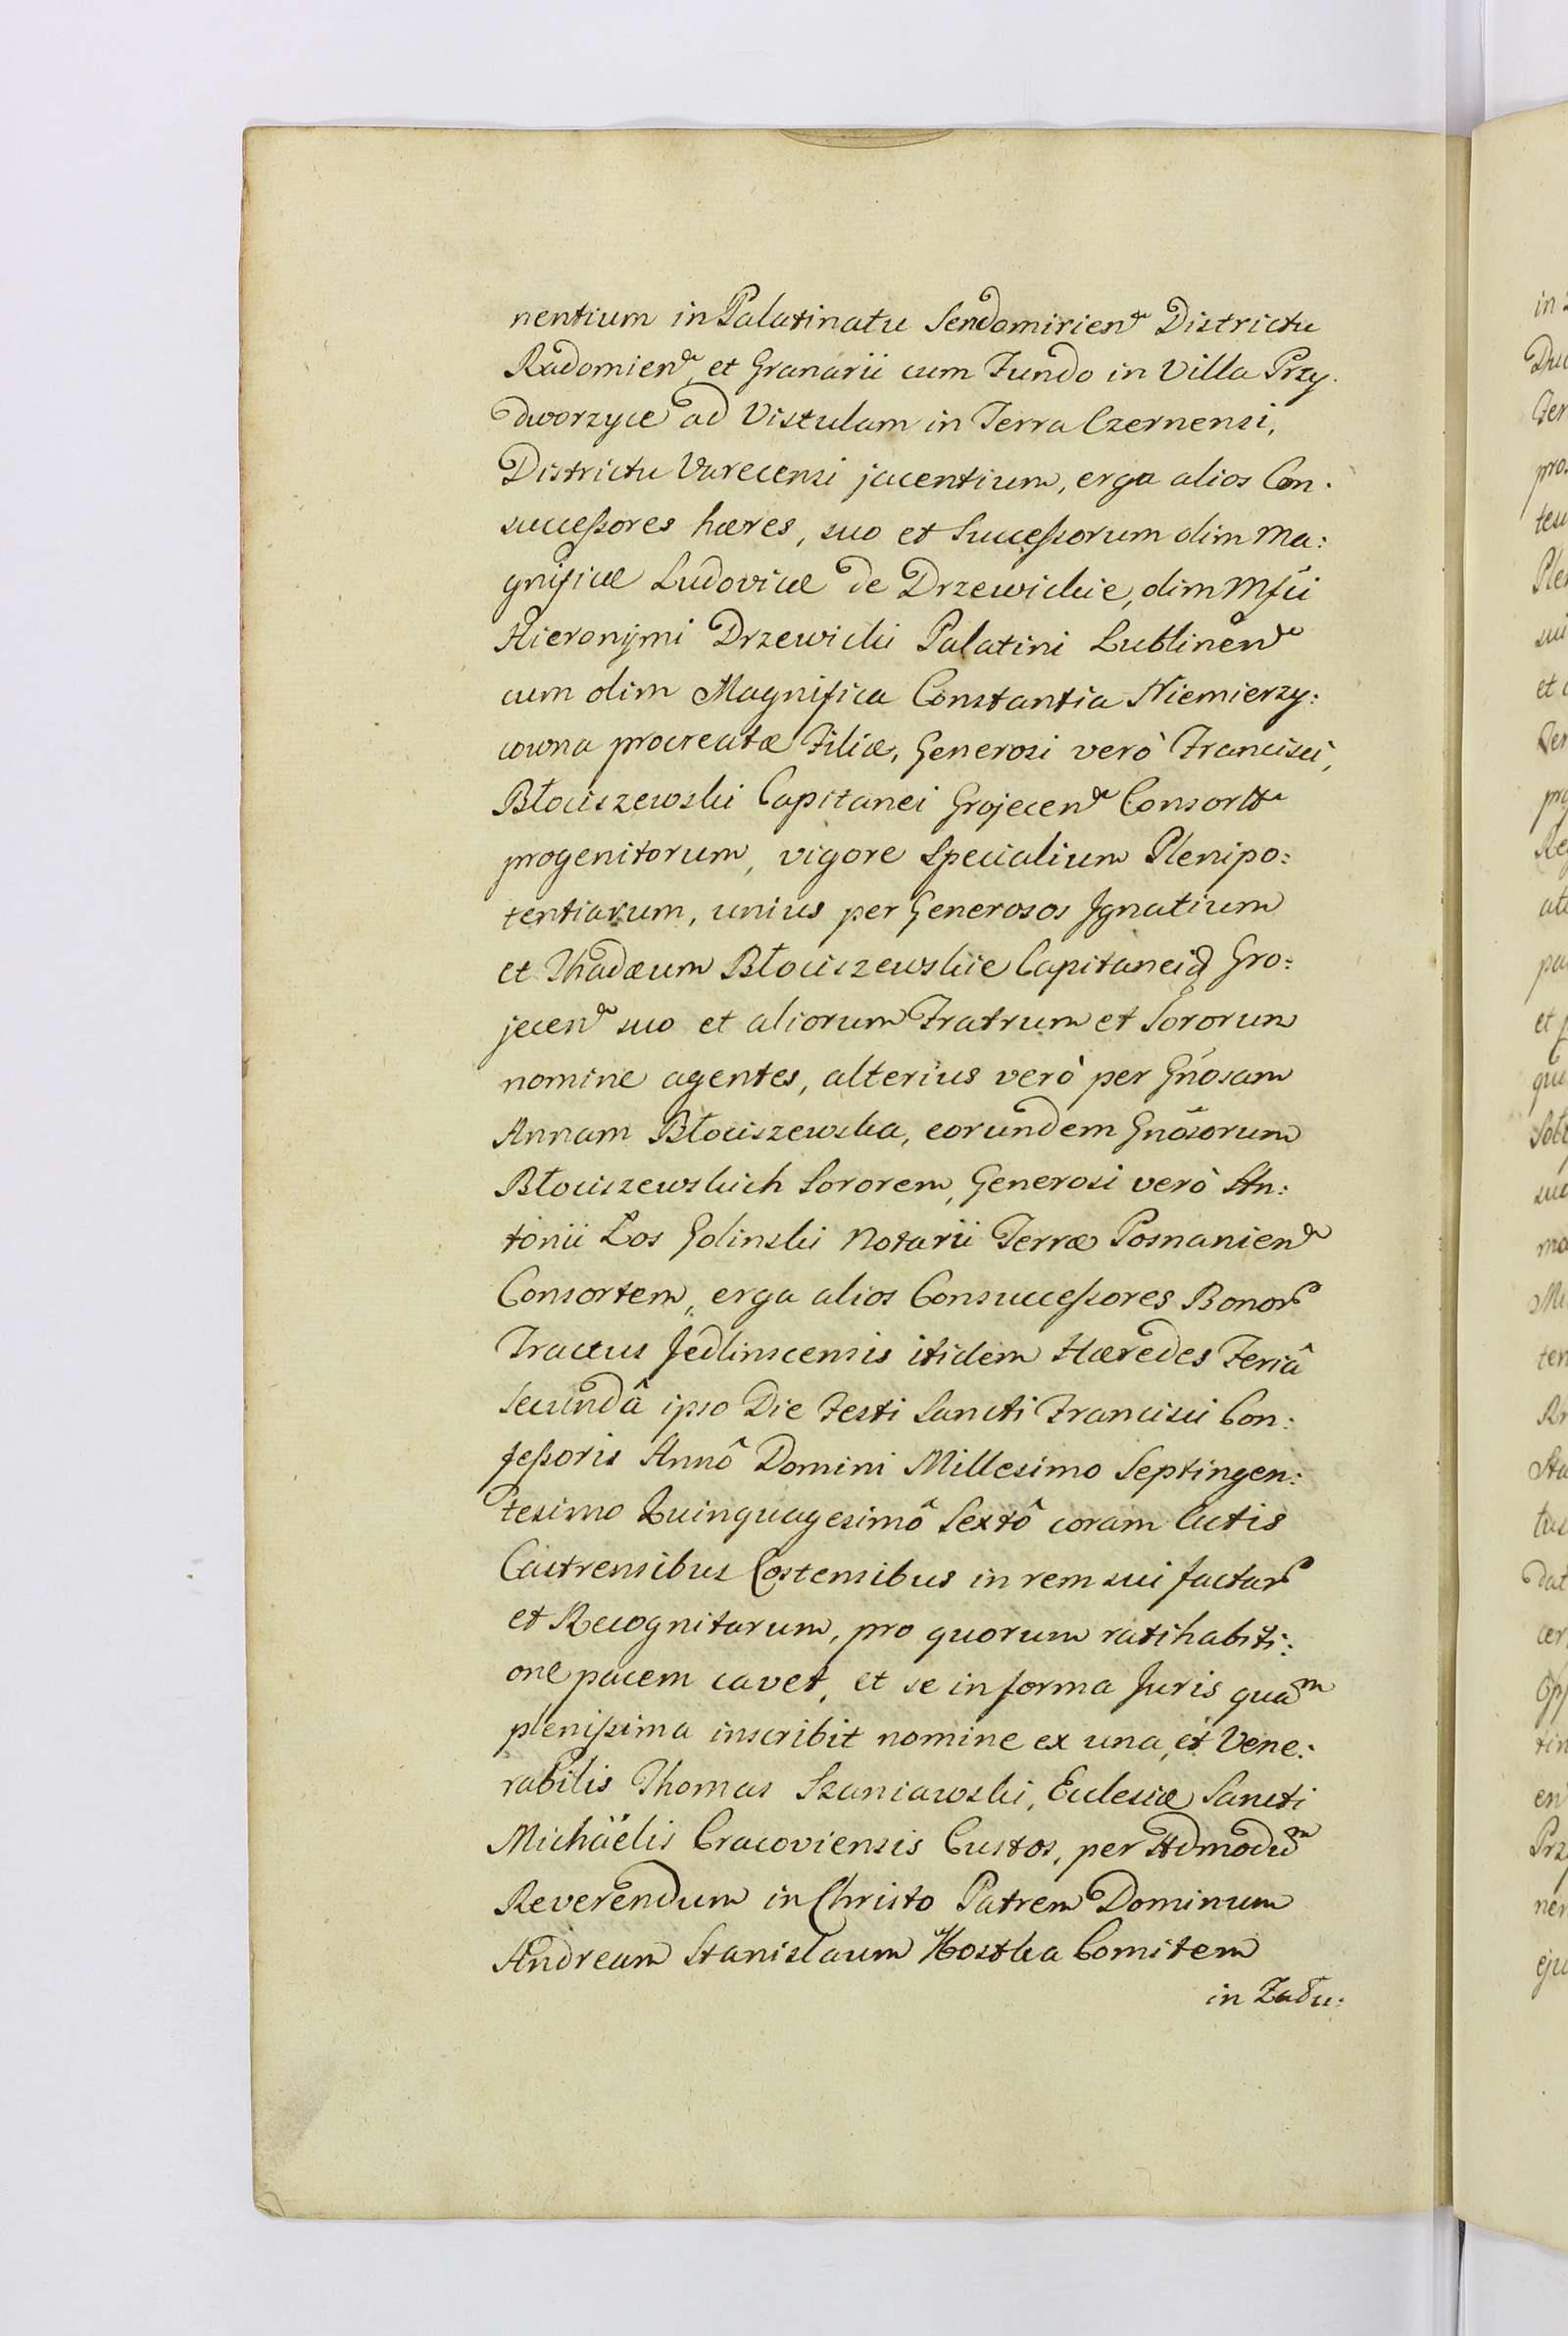 nentium in Palatinatu Sendomirien~ Districtu
Radomien~, et Granarii cum Fundo in Villa Przy:
dworzyce ad Vistulam in Terra Czernensi,
Districtu Varecensi jacentium, erga alios Con:
successores hæres, suo et Successorum olim Ma:
gnificæ Ludovicæ de Drzewickie, olim Mfci
Hieronymi Drzewicki Palatini Lublinen~
cum olim Magnifica Constantia Niemierzy:
cowna procreatæ Filiæ, Generosi verò Francisci,
Błociszewski Capitanei Grojecen~ Consortt~
progenitorum, vigore Specialium Plenipo:
tentiarum, unius per Generosos Ignatium
et Thadæum Błociszewskie Capitaneid Gro:
jecen~ suo et aliorum Fratrum et Sororum
nomine agentes, alterius verò per Gn̄osam
Annam Błociszewska, eorundem Gn̄osorum
Błociszewskich Sororem, Generosi verò An:
tonii Łos Golinski Notarii Terræ Posnanien~
Consortem, erga alios Consuccessores Bonor~
Tractus Jedlinscensis itidem Hæredes Feriâ
Secundâ ipso Die Festi Sancti Francisci Con:
fessoris Annô Domini Millesimo Septingen:
tesimo Quinquagesimô Sextô coram Actis
Castrensibus Costensibus in rem sui factar~
et Recognitarum, pro quorum ratihabiti:
one pacem cavet, et se in forma Juris quam
plenissima inscribit nomine ex una, et Vene:
rabilis Thomas Szaniawski, Ecclesiæ Sancti
Michäelis Cracoviensis Custos, per Admodum
Reverendum in Christo Patrem Dominum
Andream Stanislaum Kostka Comitem
in Zału: